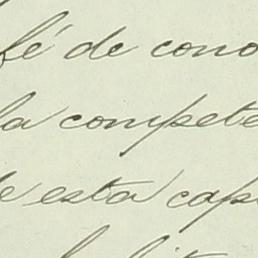 fé de cono
la compete
de esta cap